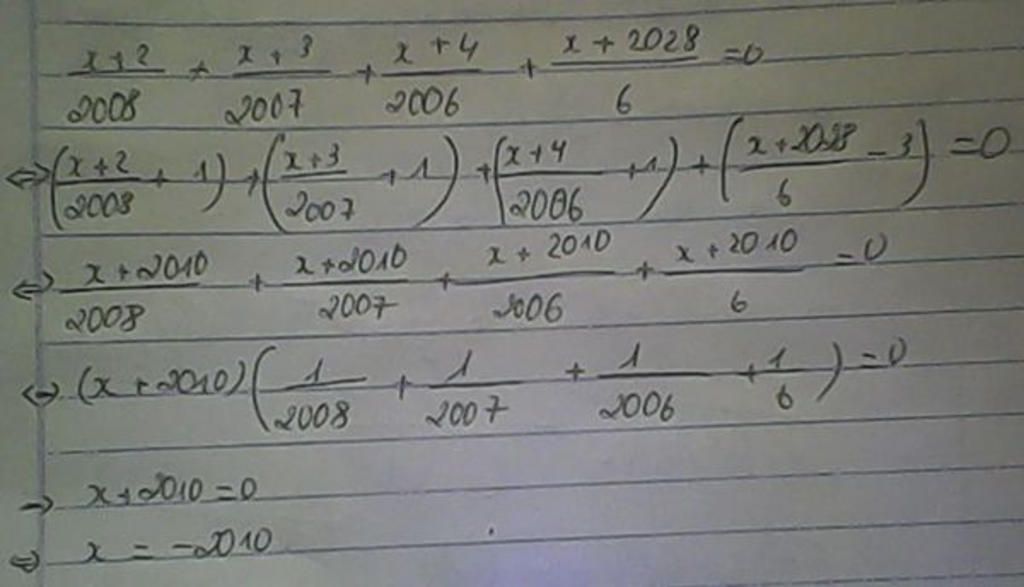 \frac{x+2}{2008} + \frac{x+3}{2007} + \frac{x+4}{2006} + \frac{x+2028}{6} = 0
⇔ (\frac{x+2}{2008} + 1) + (\frac{x+3}{2007} + 1) + (\frac{x+4}{2006} + 1) + (\frac{x+2028}{6} - 3) = 0
⇔ \frac{x+2010}{2008} + \frac{x+2010}{2007} + \frac{x+2010}{2006} + \frac{x+2010}{6} = 0
⇔ (x+2010)(\frac{1}{2008} + \frac{1}{2007} + \frac{1}{2006} + \frac{1}{6}) = 0
→ x+2010=0
⇔ x = -2010